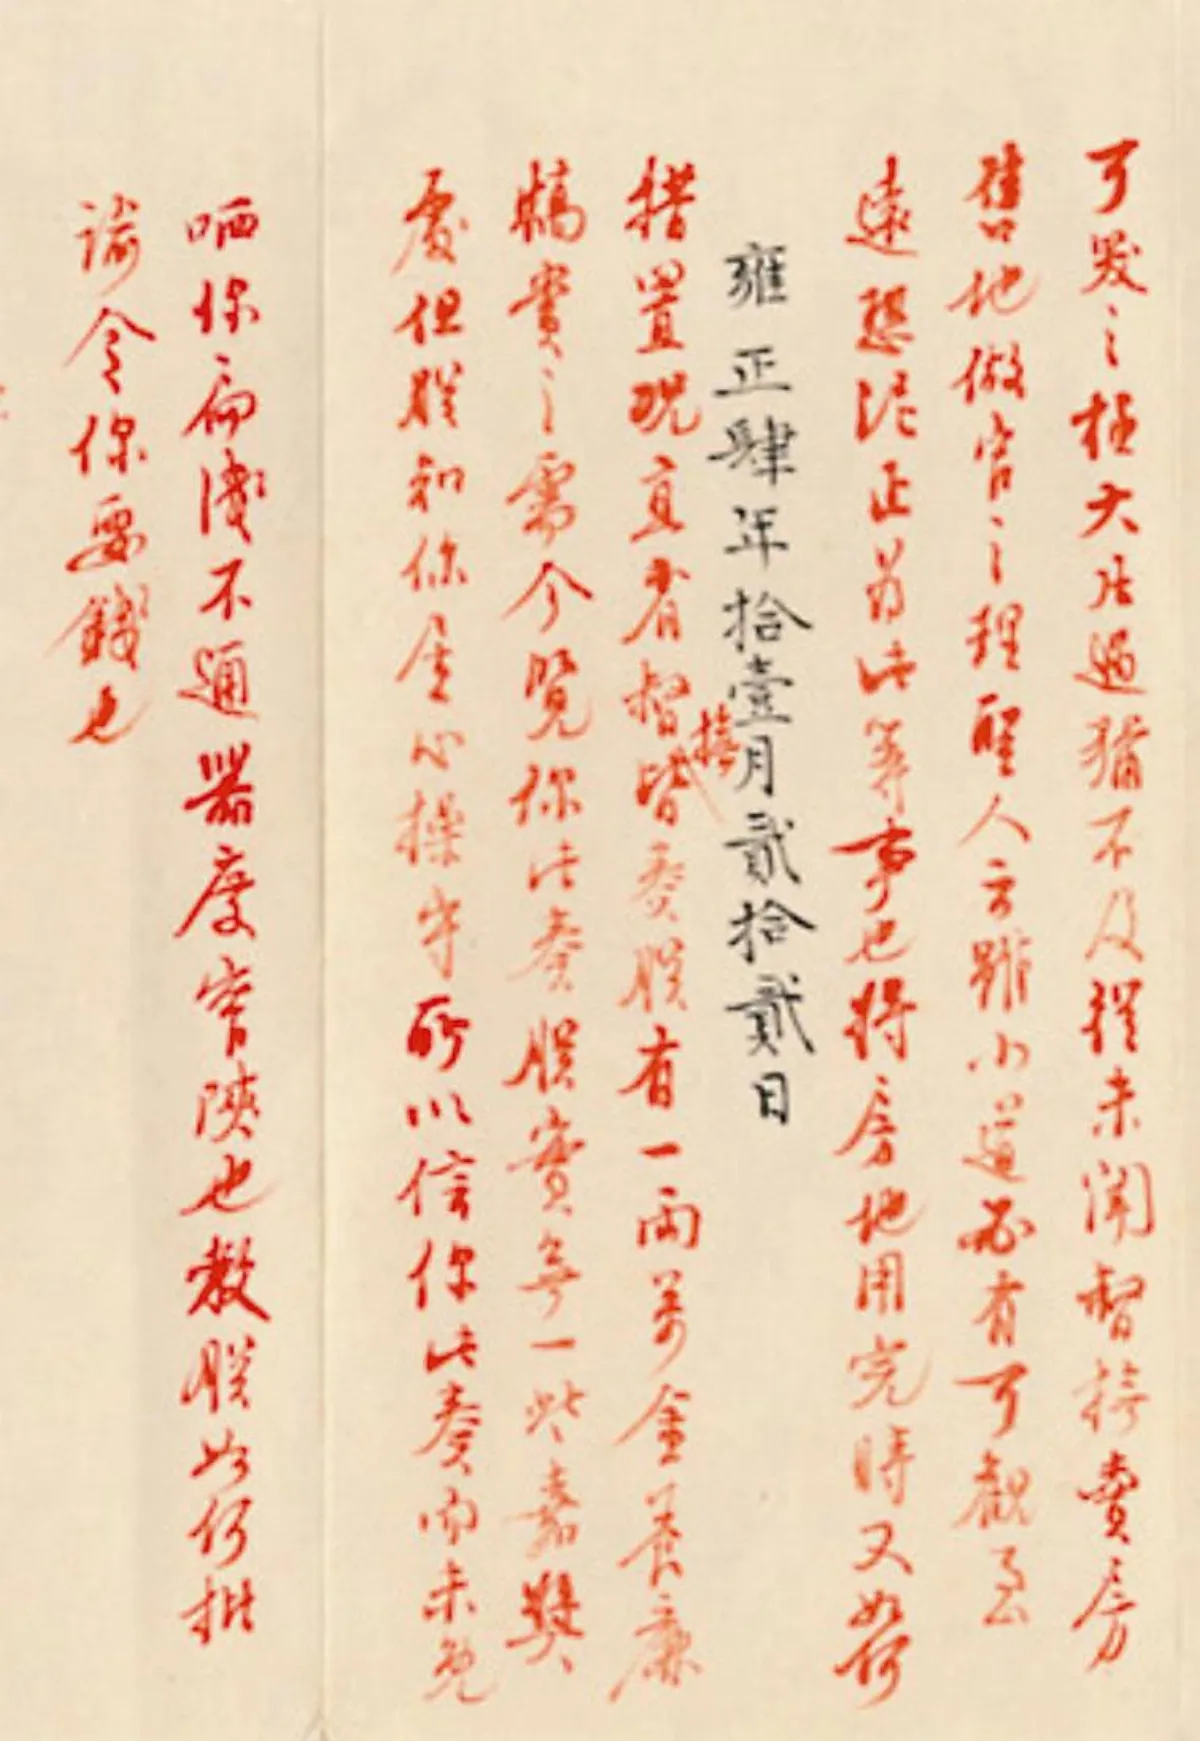 可發之極大凡過猶不及從未聞督撫賣房
售地做官之理聖人云雖小道必有可觀至
遠恐泥正為此等事也將房地用完時又如何
雍正肆年拾壹月貳拾貳日
措置現直省督撫皆奏朕有一兩萬金養廉
犒賞之需今覽你此奏朕實無一些嘉獎
處但朕知你居心操守所以信你此奏而未免
哂你褊淺不通器度窄陝也教朕如何批
諭令你要錢也